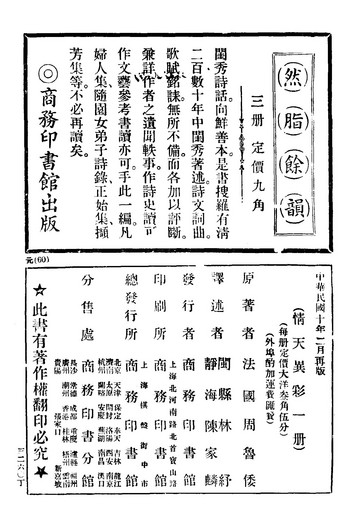 然脂餘韻
三册 定價九角
閨秀詩話。向鮮善本。是書搜羅有清
二百數十年中閨秀著述詩文詞曲。
歌賦銘誄無所不備。而各加以評斷。
兼詳作者之遺聞軼事。作詩史讀可。
作文藝參考書讀亦可。手此一編。凡
婦人集隨園女弟子詩錄正始集擷
芳集等不必再讀矣。
◎商務印書館出版
元(60)
中華民國十年二月再版
(情天異彩一册)
(每册定價大洋叁角伍分)
(外埠酌加運費匯費)
原著者 法國周魯倭
譯述者 閩縣林紓
靜海陳家麟
發行者 商務印書館
上海北河南路北首寶山路
印刷所 商務印書館
上海棋盤街中市
總發行所 商務印書館
北京 天津 保定 奉天 吉林 龍江
濟南 太原 開封 洛陽 西安 南京
杭州 蘭谿 安慶 蕪湖 南昌 漢口
分售處 商務印書分館
長沙 常德 成都 重慶 瀘縣 福州
廣州 潮州 香港 桂林 梧州 雲南
貴陽 張家口 新嘉坡
★此書有著作權翻印必究★